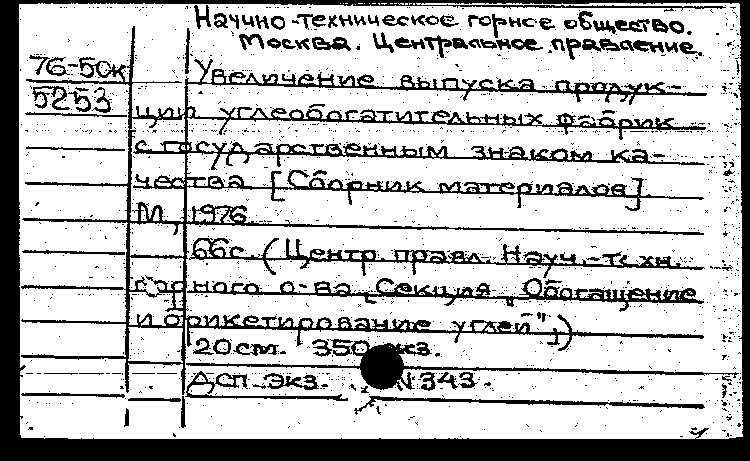 Начино-техническое горное общество.
Москва. Центральное правление.
76-50к Увеличение выпуска продук-
5253 ции углеобогатительных фабрик
с государственным знаком ка-
чества [Сборник материалов].
М, 1976.
66с. (Центр. правл. Науч.-техн.
горного о-ва. Секция "Обогащение
и брикетирование углей",)
20см. 350 экз.
ДСП. Экз. N343.